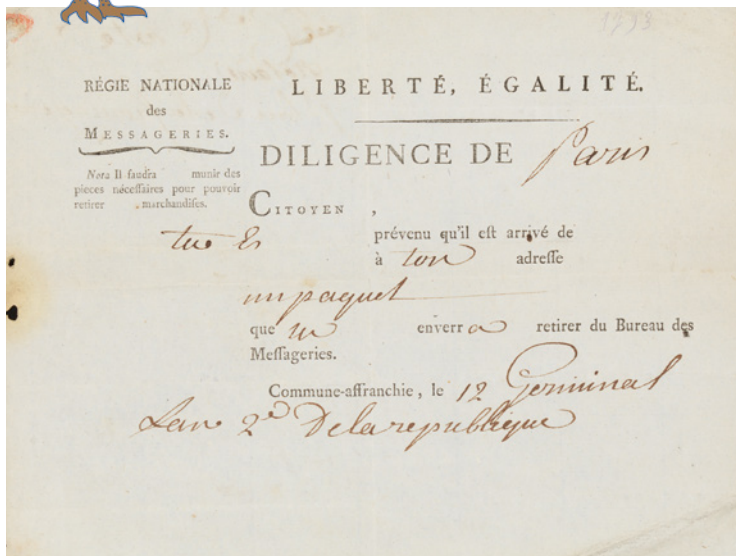 1793
RÉGIE NATIONALE
des
MESSAGERIES.
Nota Il faudra munir des
pieces nécessaires pour pouvoir
retirer marchandises.
LIBERTÉ, ÉGALITÉ.
DILIGENCE DE Paris
CITOYEN ,
tu es prévenu qu'il est arrivé de
à ton adresse
un paquet
que tu enverra retirer du Bureau des
Messageries.
Commune-affranchie, le 12 Germinal
Lan 2e De la republique